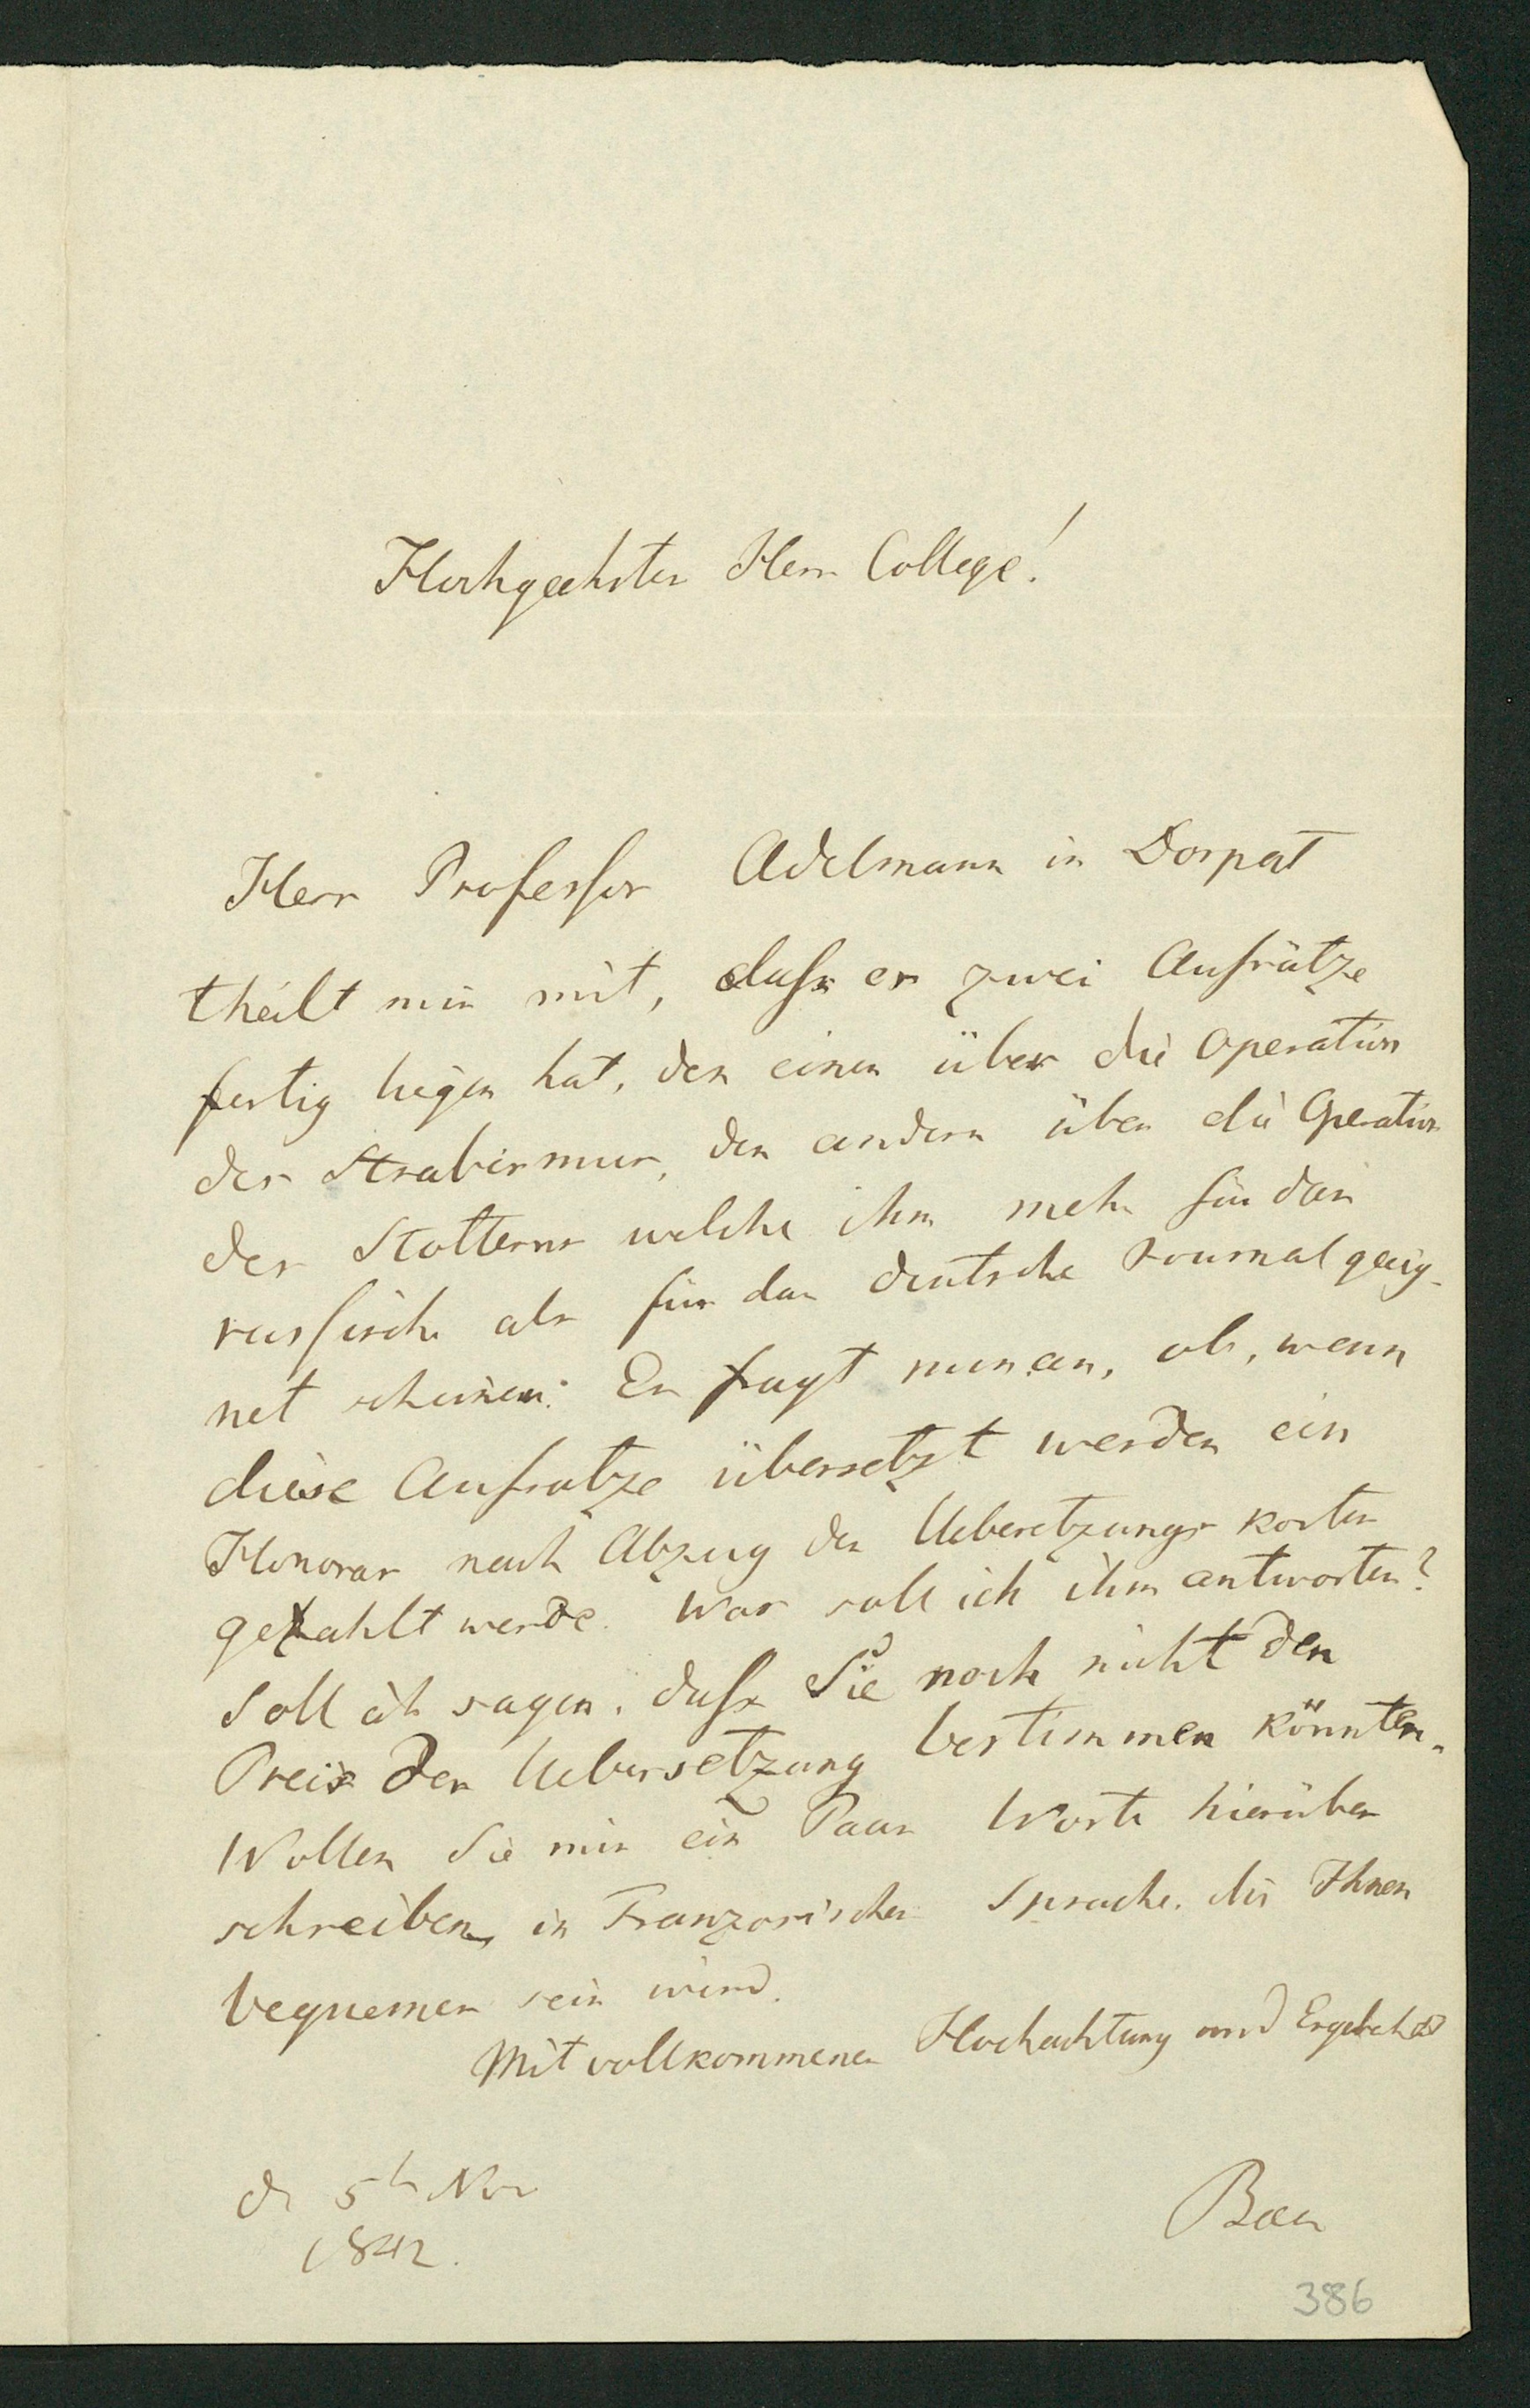 Hochgeehrter Herr College!
Herr Professor Adelmann in Dorpat
theilt mir mit, dass er zwei Aufsätze
fertig liegen hat, den einen über die Operation
des Strabismus, den andern über die Operation
des Stotterns welche ihm mehr für das
russische als für das deutsche Journal geeig-
net scheinen. Er fragt nun an, ob, wenn
diese Aufsatze übersetzt werden ein
Honorar nach Abzug der Uebersetzungs kosten
gezahlt werde. Was soll ich ihm antworten?
Soll ich sagen, dass Sie noch nicht den
Preis der Uebersetzung bestimmen könnten.
Wollen Sie mir ein Paar Worte hierüber
schreiben, in Franzosischer Sprache, die Ihnen
bequemer sein wird.
Mit vollkommener Hochachtung und
d 5t Nov
1842.
Baer
386